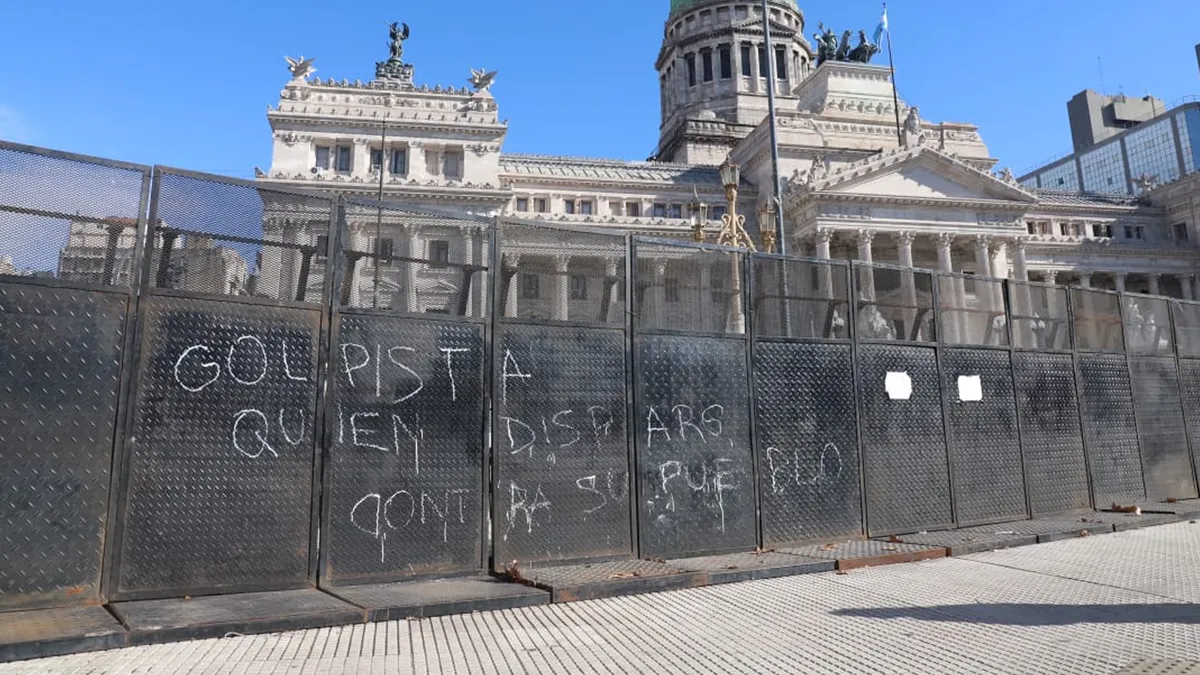 GOLPISTA
QUIEN DISPARA
CONTRA SU PUEBLO